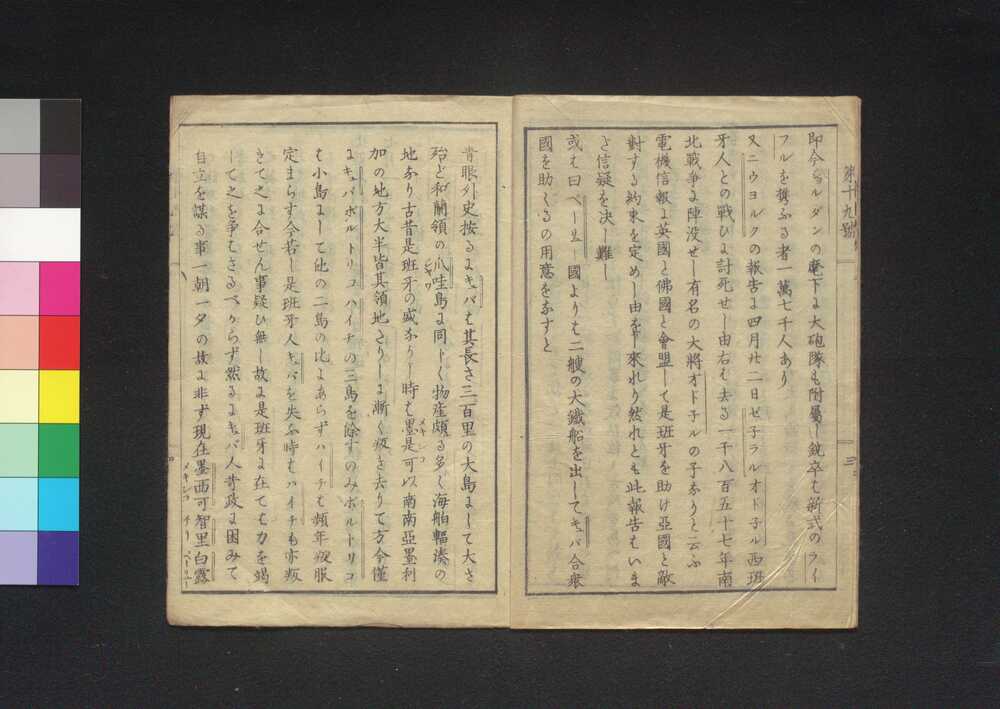 第十九號
三
即今ジョルダンの麾下に大砲隊も附屬し鋭卒も新式のライ
フルを携ふる者一萬七千人あり
又ニウヨルクの報告に四月廿二日ゼ子ラルオド子ル西班
牙人との戰ひに討死せし由右も去る一千八百五十七年南
北戰爭に陣没せし有名の大將オド子ルの子なりと云ふ
電機信報に英國と佛國と會盟して是班牙を助け亞國と敵
對する約束を定めし由を來れり然れとも此報告もいま
さ信疑を決し難し
或も曰ペーリュー國よりも二艘の大鐵船を出してキュバ合衆
國を助くるの用意をなすと
青眼外史按るにキュバも其長さ三百里の大島にして大さ
殆ど和蘭領の爪哇島に同トく物産頗る多く海舶輻湊の
地なり古昔是班牙の盛なりし時も墨是可以南南亞墨利
加の地方大半皆其領地さりしに漸く叛き去りて方今僅
にキュバポルトリコハイチの三島を除すのみポルトリコ
も小島にして他の二島の比にあらずハイチも頻年叛服
定まらす今若し是班牙人キュバを失ふ時もハイチも亦叛
きて之に合せん事疑ひ無し故に是班牙に在ても力を竭
して之を爭もさるべからず然るにキュバ人苛政に困みて
自立を謀る事一朝一夕の故に非ず現在墨西可智里白露